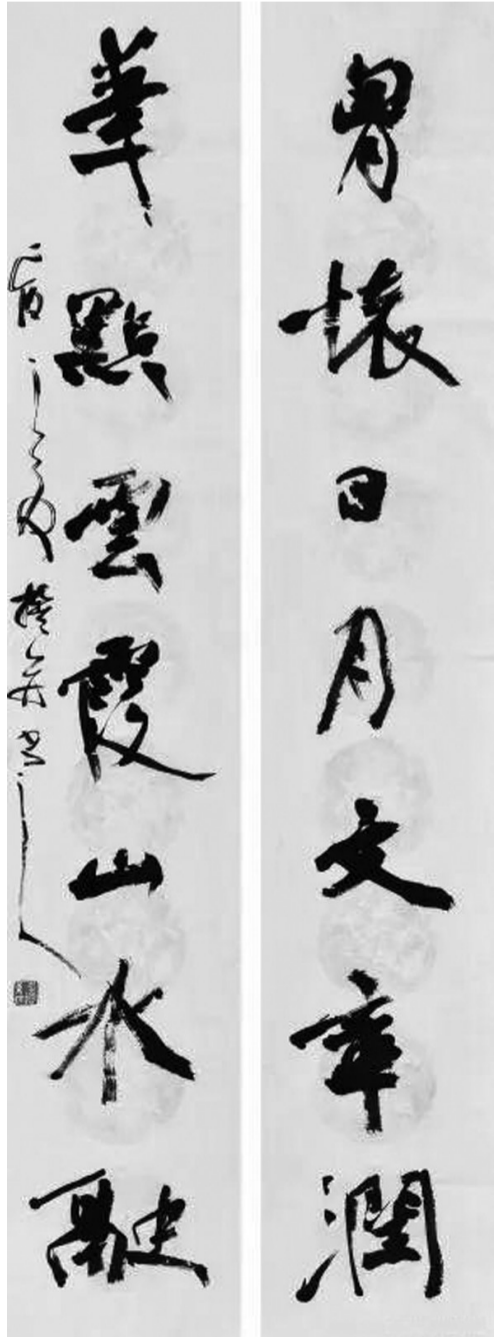 胷懷日月文章潤
筆點雲霞山水融